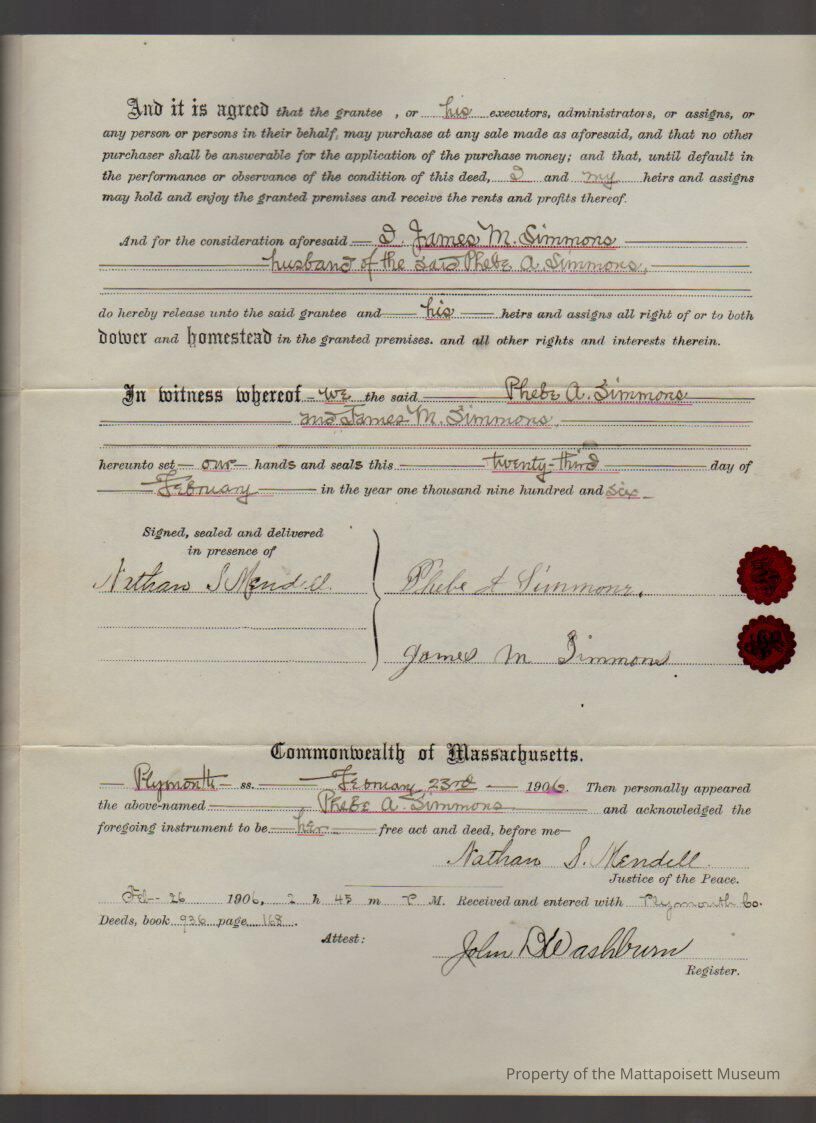 And it is agreed that the grantee , or his executors, administrators, or assigns, or
any person or persons in their behalf, may purchase at any sale made as aforesaid, and that no other
purchaser shall be answerable for the application of the purchase money; and that, until default in
the performance or observance of the condition of this deed, I and my heirs and assigns
may hold and enjoy the granted premises and receive the rents and profits thereof.
And for the consideration aforesaid I, James M. Simmons
husband of the said Phebe A. Simmons,
do hereby release unto the said grantee and his heirs and assigns all right of or to both
dower and homestead in the granted premises. and all other rights and interests therein.
In witness whereof we the said and Phebe A. Simmons
and James M. Simmons,
hereunto set our hands and seals this twenty-third day of
February in the year one thousand nine hundred and six
Signed, sealed and delivered
in presence of
Nathan S Mendell
Phebe A Simmons.
James M Simmons
Commonwealth of Massachusetts.
Plymouth ss. February 23rd 1906. Then personally appeared
the above-named Phebe A. Simmons and acknowledged the
foregoing instrument to be her free act and deed, before me—
Nathan S. Mendell
Justice of the Peace.
Feb- 26 1906, 2 h 45 m P M. Received and entered with Plymouth Co.
Deeds, book 936 page 168.
Attest:
John D Washburn
Register.
Property of the Mattapoisett Museum